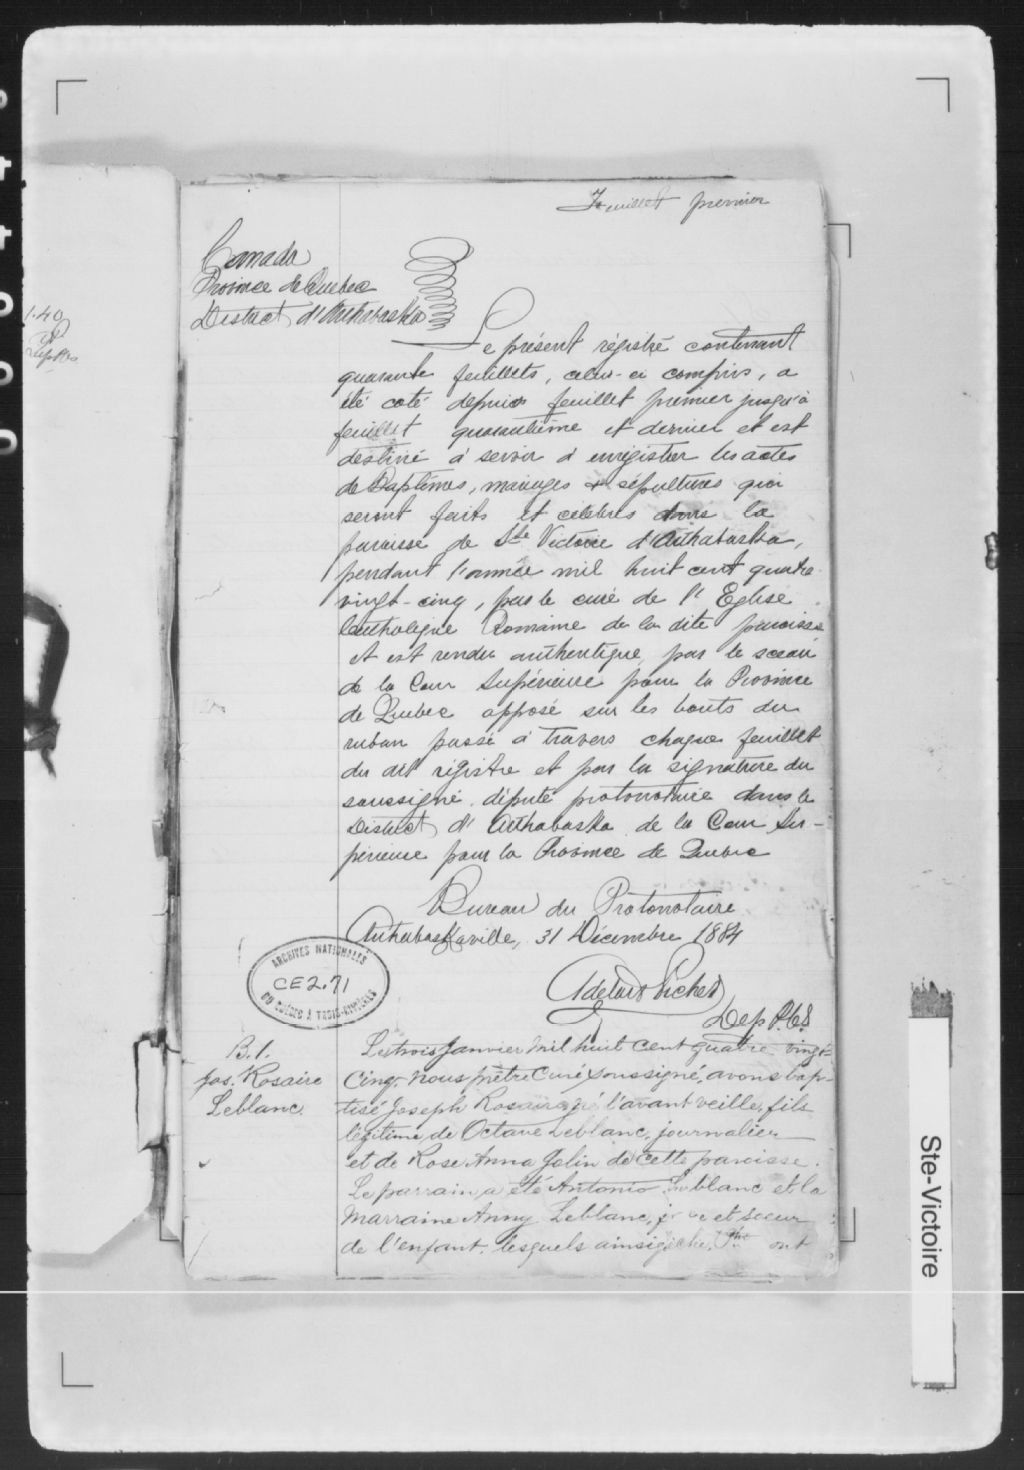 Feuillet premier
Canada
Province de Quebec
District d'Arthabaska
1.40
Le présent régistre contenant
quarante feuillets, celui-ci compris, a
été coté depuis feuillet premier jusqu'à
feuillet quarantième et dernier et est
destiné à servir à enregistrer les actes
de Baptêmes, mariages & sépultures qui
seront faits et célébrés dans la
paroisse de Ste Victoire d'Arthabaska,
pendant l'année mil huit cent quatre
vingt-cinq, par le curé de l'Eglise
Catholique Romaine de la dite paroisse
et est rendu authentique par le sceau
de la Cour Supérieure pour la Province
de Quebec apposé sur les bouts du
ruban passé à travers chaque feuillet
du dit régistre et par la signature du
soussigné député protonotaire dans le
District d'Arthabaska de la Cour Su-
périeure pour la Province de Quebec
Bureau du Protonotaire
Arthabaskaville, 31 Décembre 1884
ARCHIVES NATIONALES
CE2.71
DU QUÉBEC À TROIS-RIVIÈRES
Dep P.C.S
B.1.
Jos. Rosaire
Leblanc
Le trois Janvier mil huit cent quatre vingt-
Cinq, nous prêtre Curé soussigné, avons bap-
tisé Joseph Rosaire né l'avant veille, fils
légitime de Octave Leblanc, journalier
et de Rose Anna Jolin de cette paroisse.
Le parrain a été Antonio Leblanc et la
Marraine Anny Leblanc, et soeur
de l'enfant, lesquels ainsi ont
Ste-Victoire